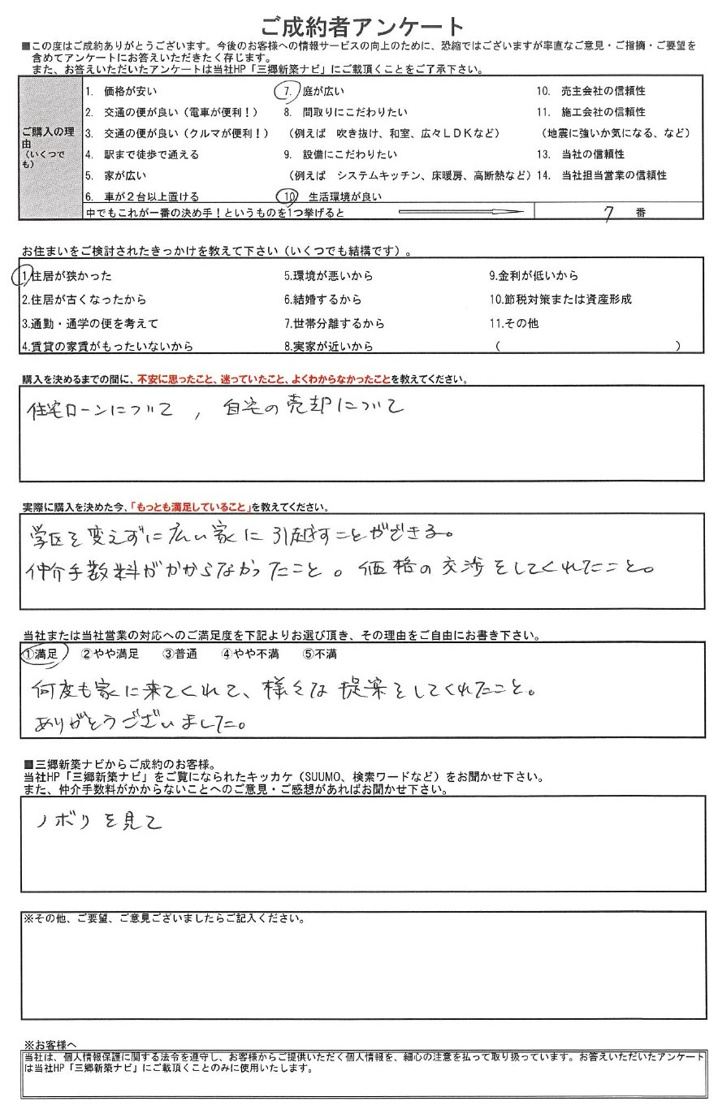 ご成約者アンケート
■この度はご成約ありがとうございます。今後のお客様への情報サービスの向上のために、恐縮ではございますが率直なご意見・ご指摘・ご要望を
含めてアンケートにお答えいただきたく存じます。
また、お答えいただいたアンケートは当社HP「三郷新築ナビ」にご載頂くことをご了承下さい。
ご購入の理由
(いくつでも)
1. 価格が安い
2. 交通の便が良い(電車が便利!)
3. 交通の便が良い(クルマが便利!)
4. 駅まで徒歩で通える
5. 家が広い
6. 車が2台以上置ける
7. 庭が広い
8. 間取りにこだわりたい
(例えば 吹き抜け、和室、広々LDKなど)
9. 設備にこだわりたい
(例えば システムキッチン、床暖房、高断熱など)
10 生活環境が良い
10. 売主会社の信頼性
11. 施工会社の信頼性
(地震に強いか気になる、など)
13. 当社の信頼性
14. 当社担当営業の信頼性
中でもこれが一番の決め手!というものを1つ挙げると 7 番
お住まいをご検討されたきっかけを教えて下さい(いくつでも結構です)。
1.住居が狭かった
2.住居が古くなったから
3.通勤・通学の便を考えて
4.賃貸の家賃がもったいないから
5.環境が悪いから
6.結婚するから
7.世帯分離するから
8.実家が近いから
9.金利が低いから
10.節税対策または資産形成
11.その他
( )
購入を決めるまでの間に、不安に思ったこと、迷っていたこと、よくわからなかったことを教えてください。
住宅ローンについて , 自宅の売却について
実際に購入を決めた今、「もっとも満足していること」を教えてください。
学区を変えずに広い家に引越すことができる。
仲介手数料がかからなかったこと。価格の交渉をしてくれたこと。
当社または当社営業の対応へのご満足度を下記よりお選び頂き、その理由をご自由にお書き下さい。
①満足 ②やや満足 ③普通 ④やや不満 ⑤不満
何度も家に来てくれて、様々な提案をしてくれたこと。
ありがとうございました。
■三郷新築ナビからご成約のお客様。
当社HP「三郷新築ナビ」をご覧になられたキッカケ(SUUMO、検索ワードなど)をお聞かせ下さい。
また、仲介手数料がかからないことへのご意見・ご感想があればお聞かせ下さい。
ノボリを見て
※その他、ご要望、ご意見ございましたらご記入ください。
※お客様へ
当社は、個人情報保護に関する法令を遵守し、お客様からご提供いただく個人情報を、細心の注意を払って取り扱っています。お答えいただいたアンケート
は当社HP「三郷新築ナビ」にご載頂くことのみに使用いたします。